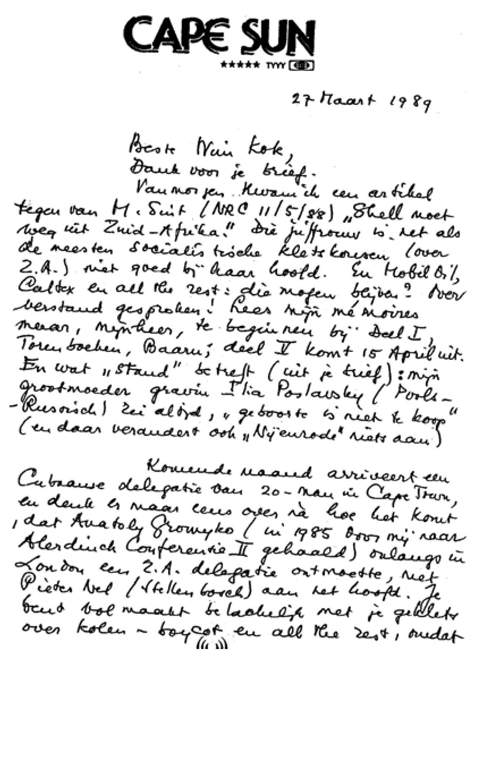 CAPE SUN
★★★★★ TYYY
27 Maart 1989
Beste Wim Kok,
Dank voor je brief.
Vanmorgen kwam ik een artikel
tegen van M. Smit (NRC 11/5/88) „Shell moet
weg uit Zuid-Afrika." Die juffrouw is net als
de meesten socialistische kletskousen (over
Z.A.) niet goed bij haar hoofd. En Mobil Oil,
Caltex en all the rest: die mogen blijven? Over
verstand gesproken! Lees mijn mémoires
maar, mijnheer, te beginnen bij Deel I,
Torenboeken, Baarn; deel V komt 15 April uit.
En wat „stand" betreft (uit je brief): mijn
grootmoeder gravin Ilia Poslavsky (Pools-
-Russisch) zei altijd, „geboorte is niet te koop"
(en daar verandert ook „Nijenrode" niets aan)
Komende maand arriveert een
Cubaanse delegatie van 20-man in Cape Town,
en denk er maar eens over nà hoe het komt
, dat Anatoly Gromyko (in 1985 door mij naar
Alerdinck Conferentie II gehaald) onlangs in
London een Z.A. delegatie ontmoette, met
Pieter Nel (Stellenbosch) aan het hoofd. Je
bent volmaakt belachelijk met je geklets
over kolen-boycot en all the rest, omdat